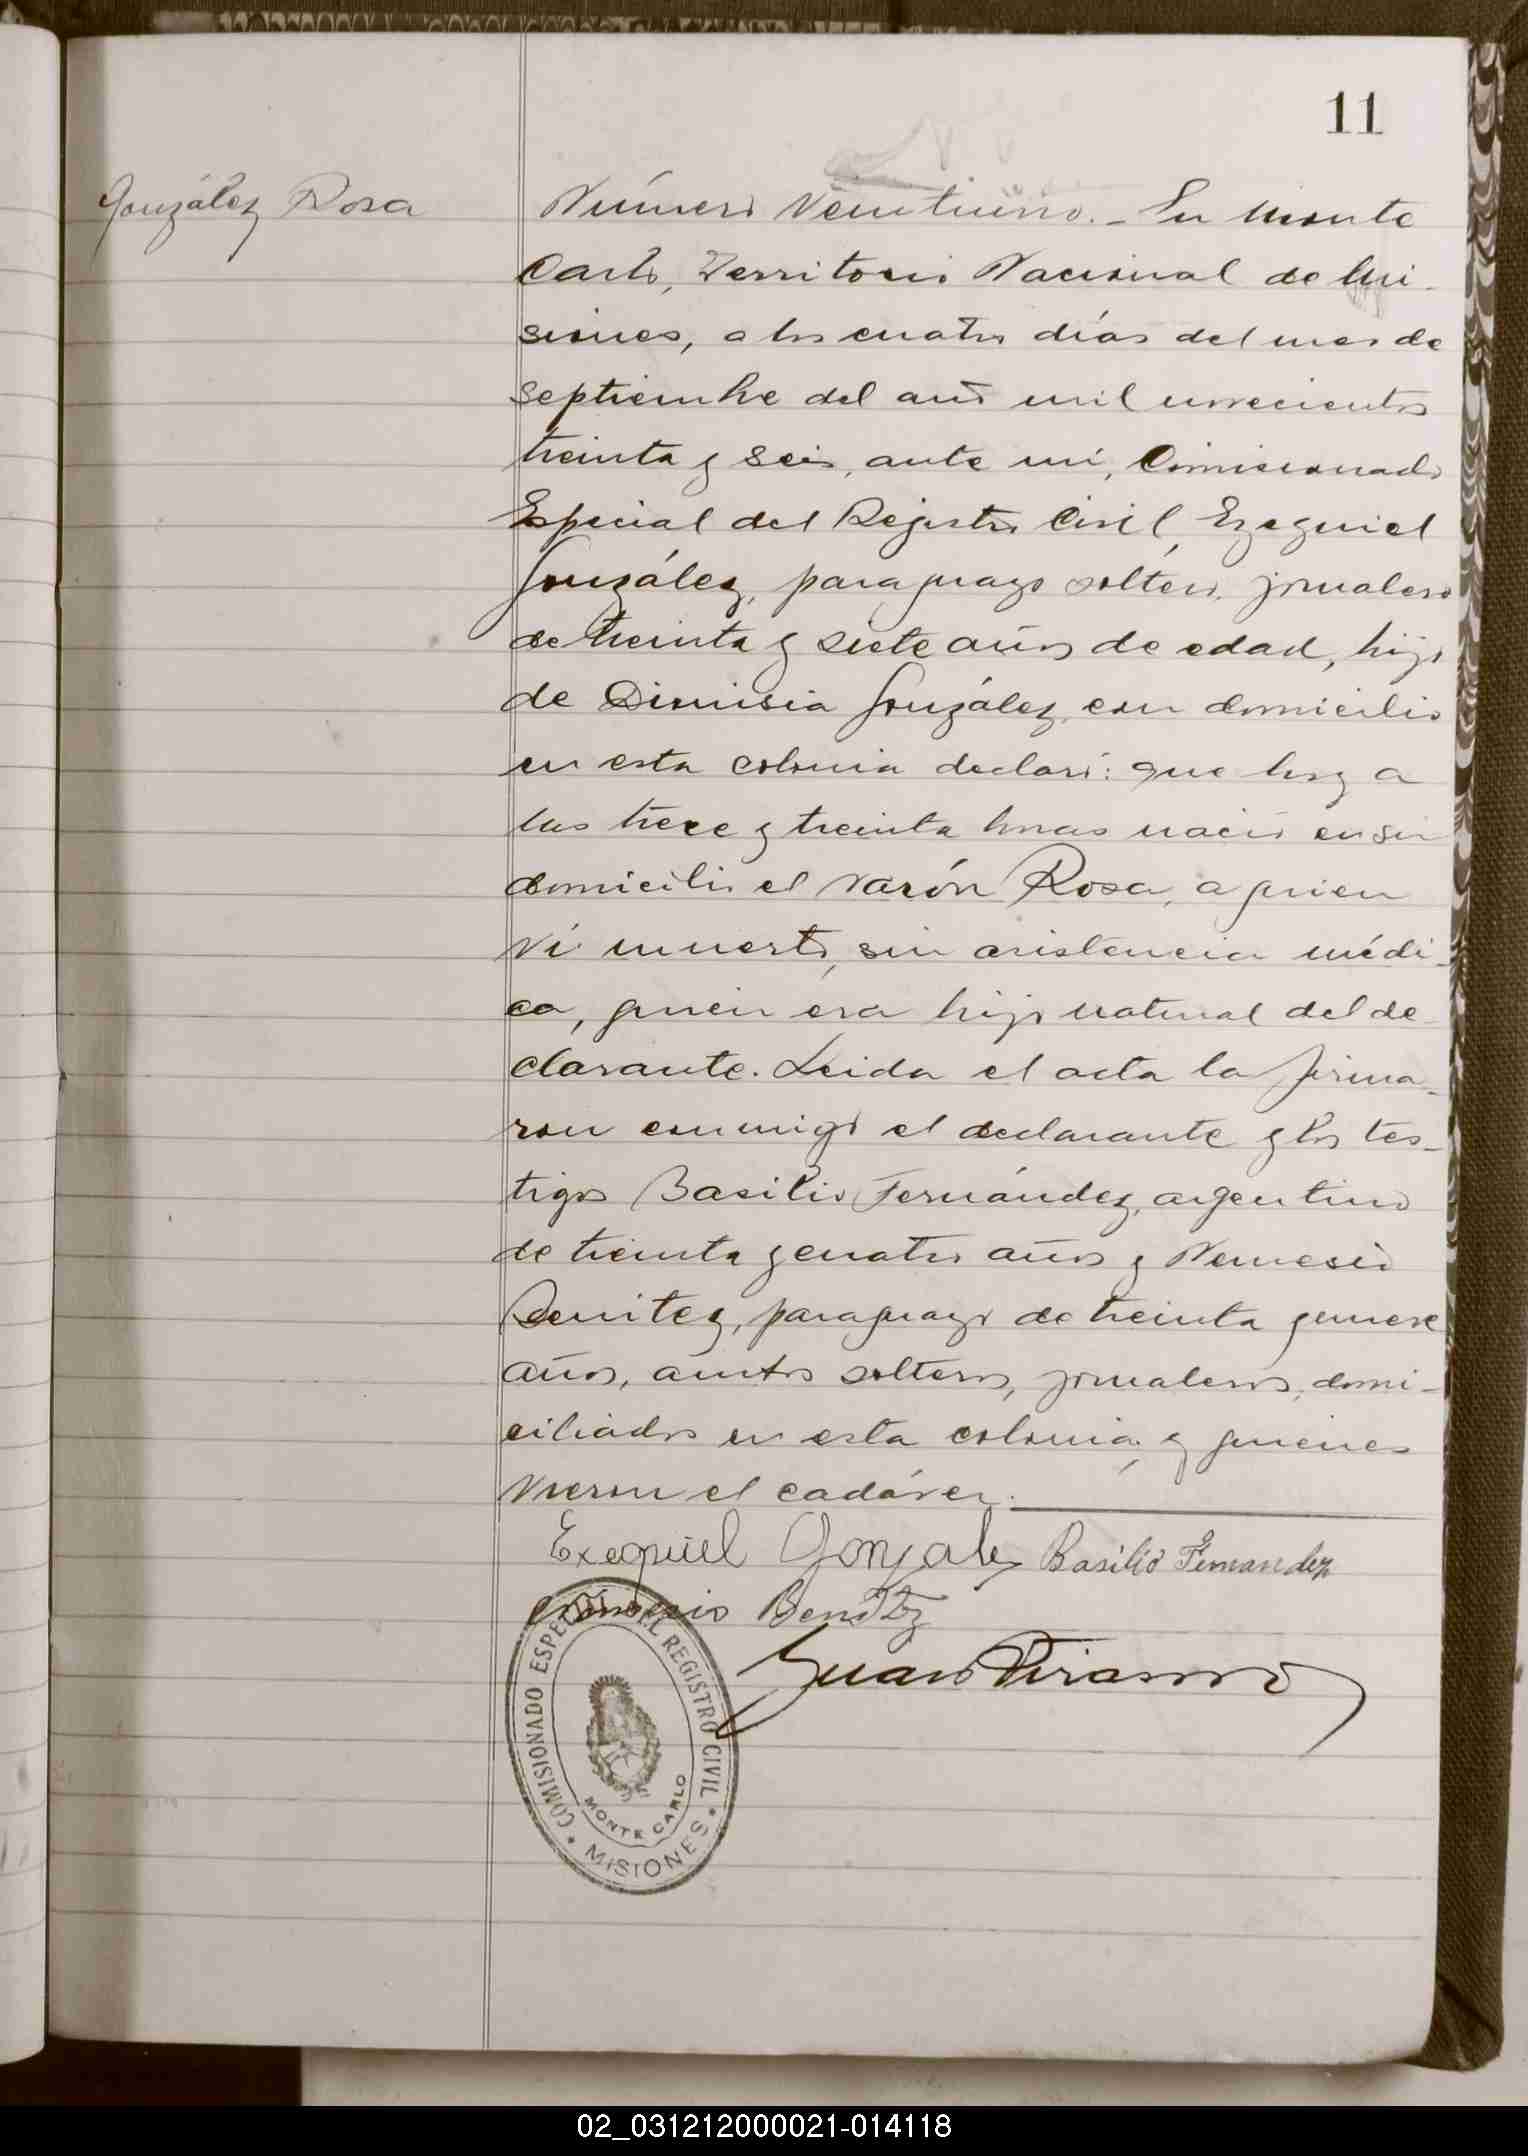 11
González Rosa
Número Veintiuno.- En Monte
Carlo, Territorio Nacional de Mi-
siones, a los cuatro días del mes de
septiembre del año mil novecientos
treinta y seis, ante mí, Comisionado
Especial del Registro Civil, Ezequiel
González, paraguayo soltero, jornalero
de treinta y siete años de edad, hijo
de Dionisia González, con domicilio
en esta colonia declaró: que hoy a
las trece y treinta horas nació en su
domicilio el varón Rosa, a quien
ví muerto, sin asistencia médi-
ca, quien era hijo natural del de-
clarante. Leida el acta la firma-
ron conmigo el declarante y los tes-
tigos Basilio Fernández, argentino
de treinta y cuatro años y Nemesio
Benitez, paraguayo de treinta y nueve
años, ambos solteros, jornaleros, domi-
ciliados en esta colonia, y quienes
vieron el cadáver.
Exequiel Gonzalez Basilio Fernandez
Benitez
Juan
COMISIONADO ESPECIAL DEL REGISTRO CIVIL
MONTE CARLO
MISIONES
02_031212000021-014118